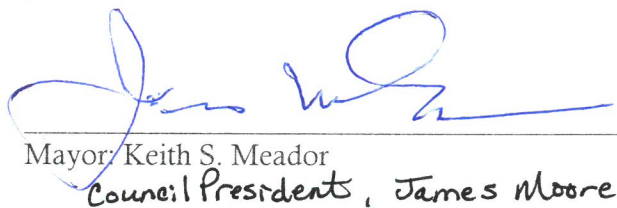 Mayor: Keith S. Meador
Council President, James Moore